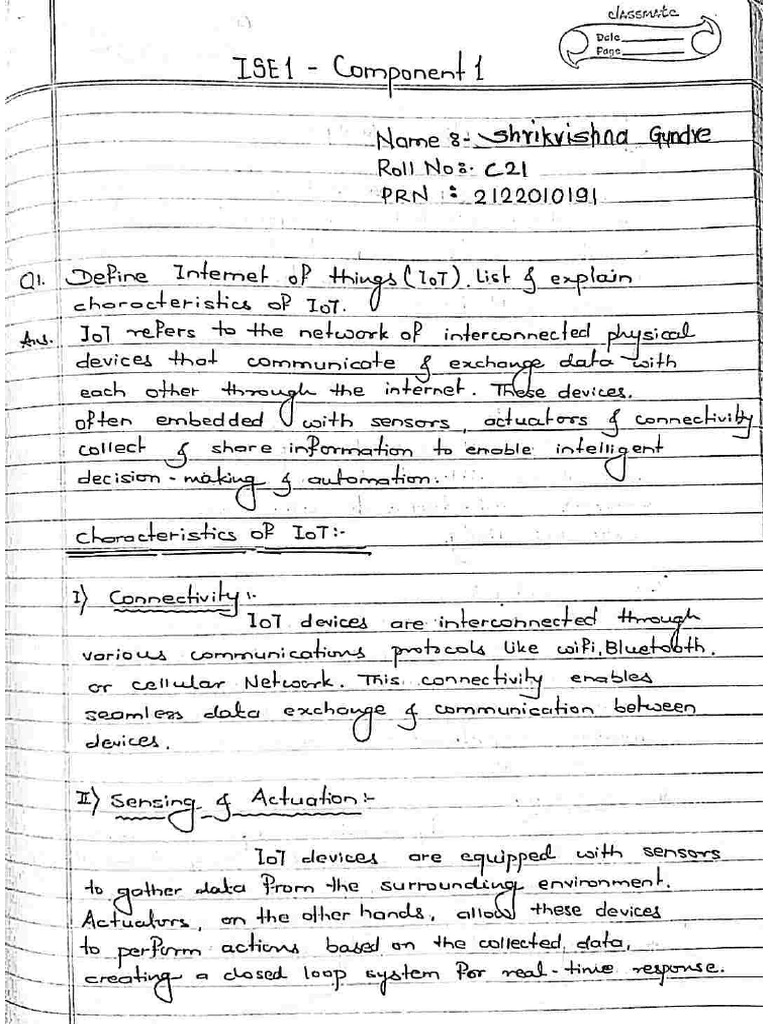 classmate
Date
Page
ISE1 - Component 1
Name :- Shrikrishna Gundre
Roll No :- C21
PRN : 2122010191
Q1. Define Internet of things (IoT). List & explain
characteristics of IoT.
Ans. IoT refers to the network of interconnected physical
devices that communicate & exchange data with
each other through the internet. These devices.
often embedded with sensors, actuators & connectivity
collect & share information to enable intelligent
decision-making & automation.
Characteristics of IoT:-
I) Connectivity:-
IoT devices are interconnected through
various communications protocals like wifi, Bluetooth.
or cellular Network. This connectivity enables
seamless data exchange & communication between
devices.
II) Sensing & Actuation:-
IoT devices are equipped with sensors
to gather data from the surrounding environment.
Actuators, on the other hands, allow these devices
to perform actions based on the collected data,
creating a closed loop system for real-time response.